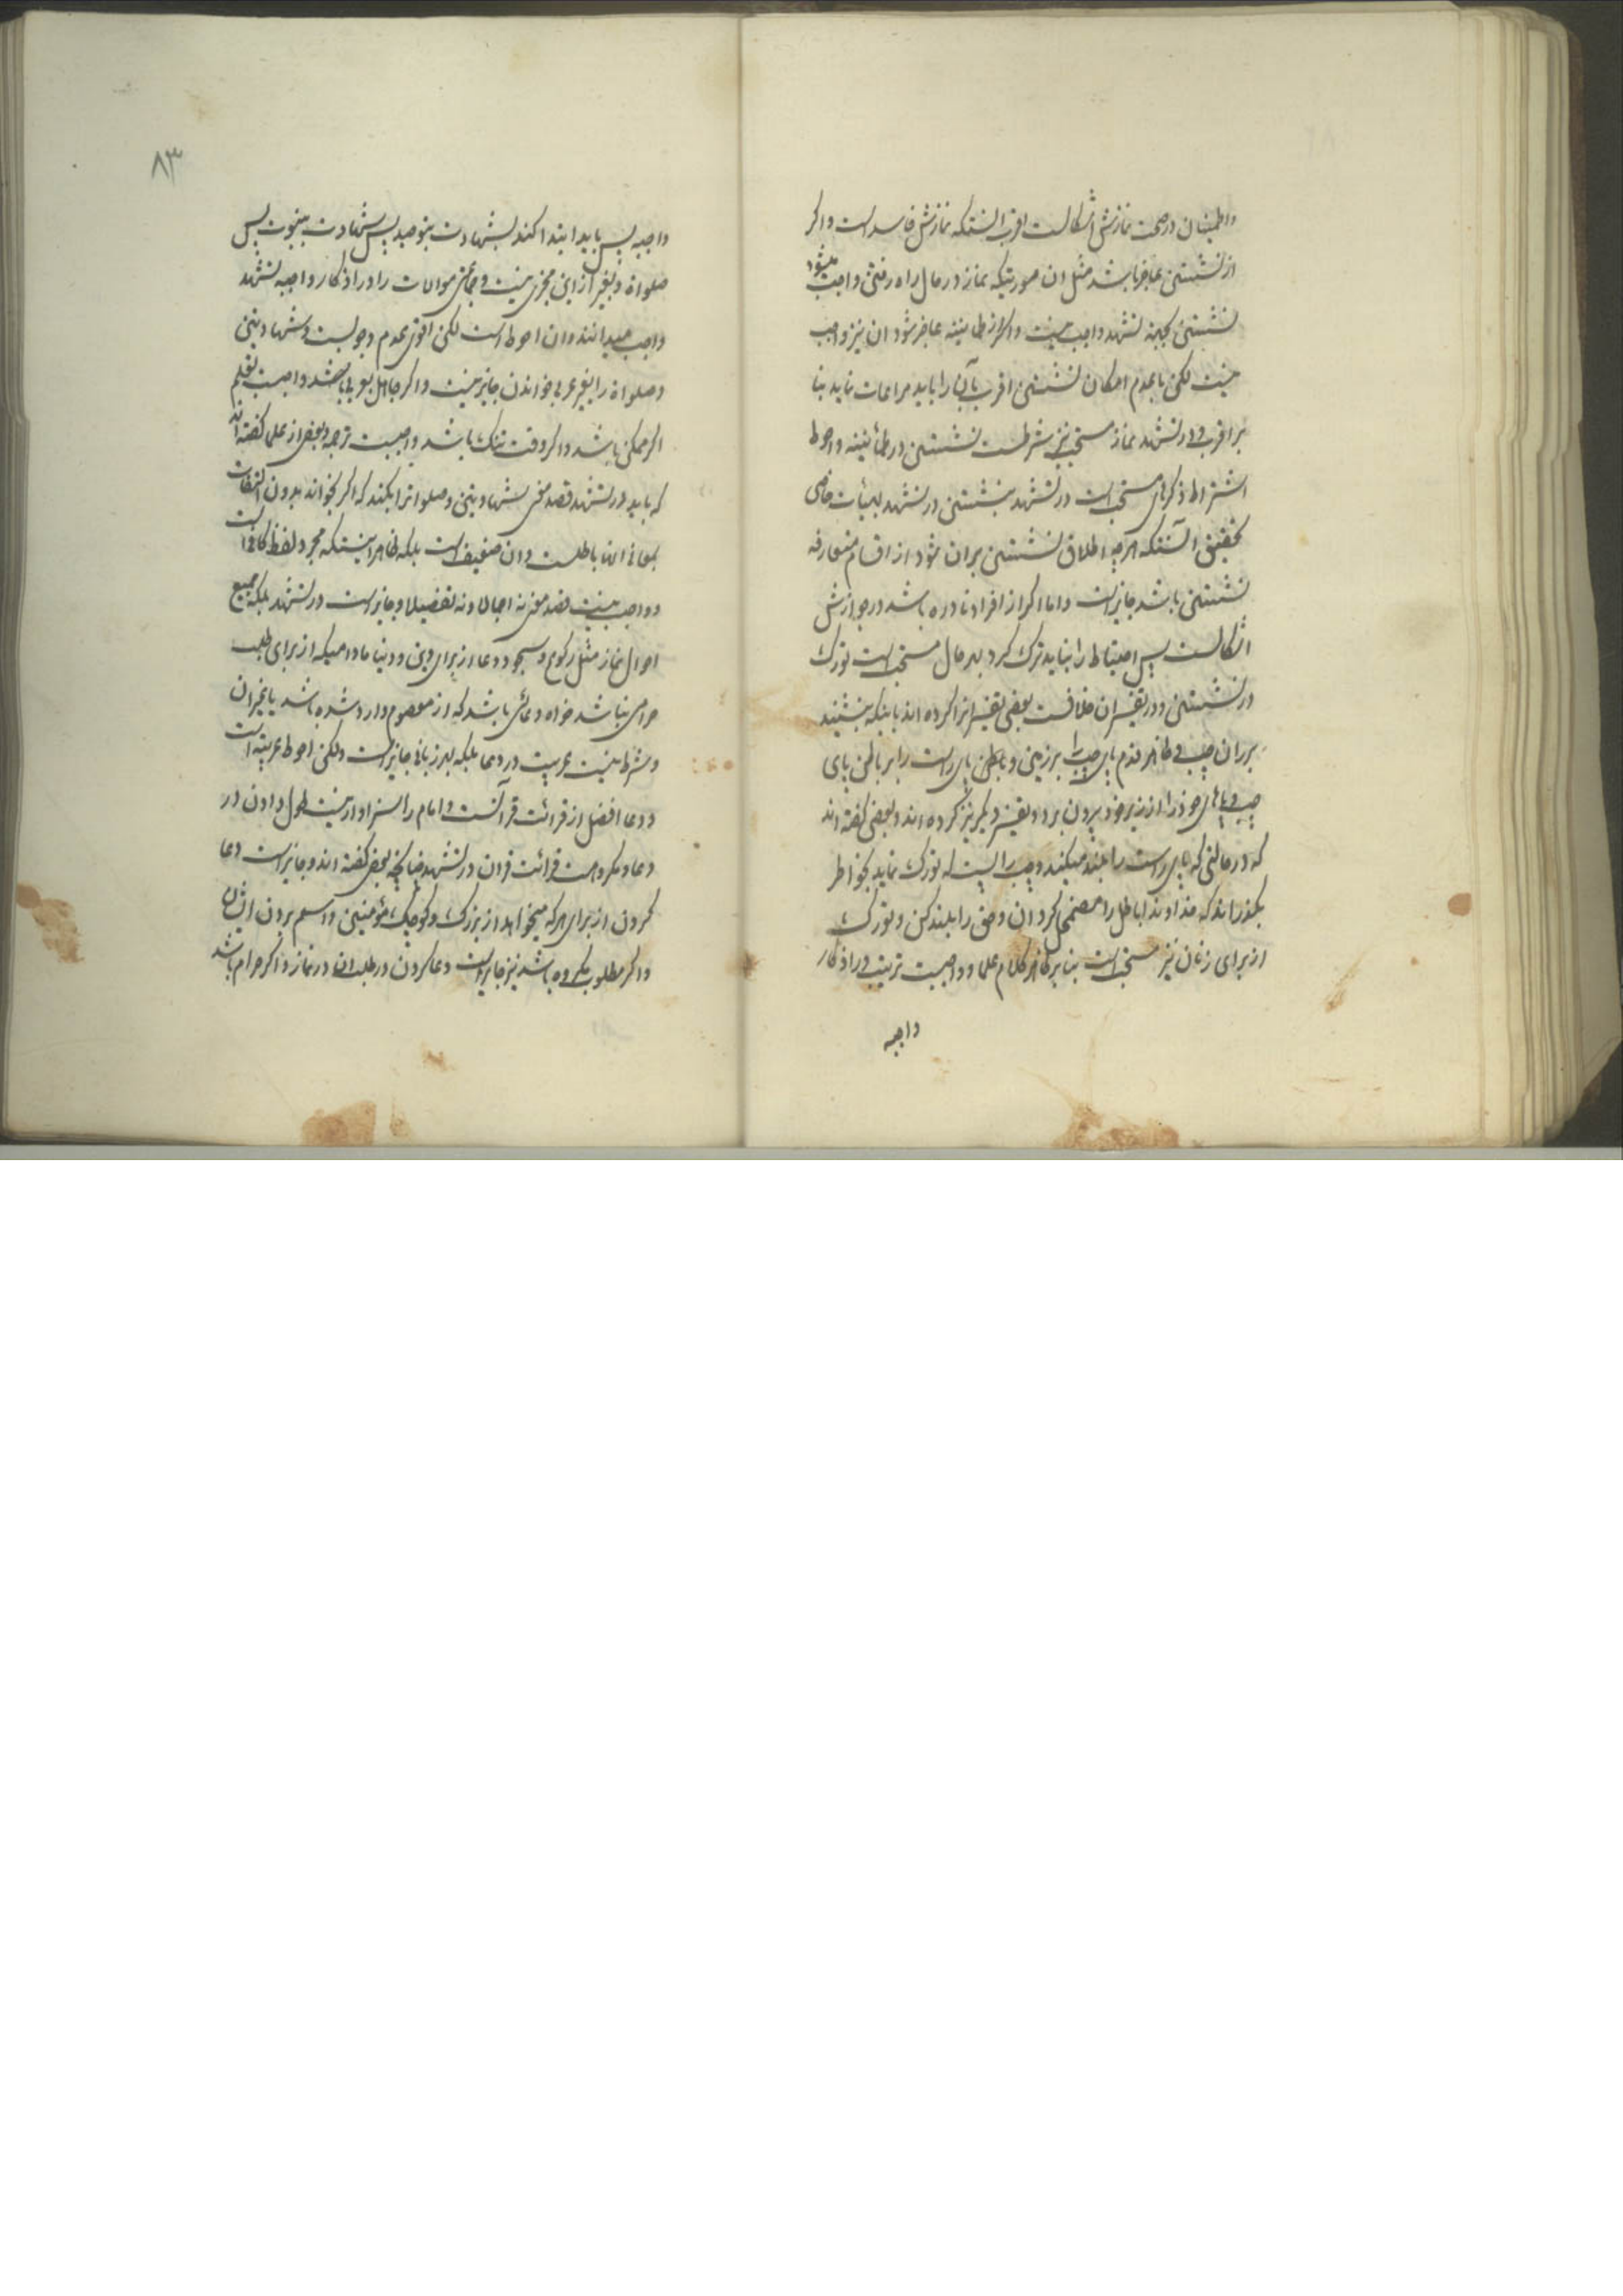 واطمینان در صحت نمازش اشکالست اقرب انستکه نمازش فاسد است و اکر
از نشستن عاجز باشد مثل ان صورتیکه نماز در حال راه رفتن واجب میشود
نشستن بجهة تشهد واجب نیست و اکر از طمانینه عاجز شود ان نیز واجب
نیست لکن با عدم امکان نشستن اقرب بآن را باید مراعات نماید بنا
بر اقرب و در تشهد نماز مستحب نیز شرطست نشستن در طمأنینه و احوط
اشتراط ذکرهای مستحب است در تشهد بنشستن در تشهد بهیئات خاصی
تحقیق آنستکه هرچه اطلاق نشستن بران شود از اقسام متعارفه
نشستن باشد جایز است و اما اکر از افراد نادره باشد در جوازش
اشکالست پس احتیاط را نباید ترک کرد بهر حال مستحب است تورک
در نشستن و در تفسیر ان خلافست بعضی تفسیر انرا کرده اند باینکه بنشیند
بر ران چپ و ظاهر قدم پای چپ را بر زمین و باطن پای راست را بر باطن پای
چپ و پاهای خود را از زیر خود بیرون برد و تفسیر دیکر نیز کرده اند و بعضی کفته اند
که در حالتی که پای راست را بلند میکند و چپ را پست که تورک نماید بخواطر
بکذراند که خداوندا باطل را مضمحل کردان و حق را بلند کن و تورک
از برای زنان نیز مستحب است بنابر ظاهر کلام علما و واجبست ترتیب در اذکار
واجبه
۸۳
واجبه پس باید ابتدا کند بشهادت بتوحید پس شهادت بنبوت پس
صلواة و بغیر از این مجزی نیست و جمعی موالات را در اذکار واجبه تشهد
واجب میدانند و ان احوط است لکن اقوی عدم وجوبست و شهادتین
و صلواة را بغیر عربی خواندن جایز نیست و اکر جاهل بعربی باشد واجبست تعلم
اکر ممکن باشد و اکر وقت تنک باشد واجبست ترجمه و بعضی از علما کفته اند
که باید در تشهد قصد معنی شهادتین و صلواترا بکند که اکر بخواند بدون التفات
بمعانی انها باطلست و ان ضعیف است بلکه ظاهر اینستکه مجرد لفظ کافی است
و واجب نیست قصد معنی نه اجمالا و نه تفصیلا و جایز است در تشهد بلکه جمیع
احوال نماز مثل رکوع و سجود دعا از برای دین و دنیا مادامیکه از برای طلب
حرامی نباشد خواه دعائی باشد که از معصوم وارد شده باشد یا غیر ان
و شرط نیست عربیت در دعا بلکه بهر زبانی جایز است ولکن احوط عربیة است
و دعا افضل از قرائت قرآنست و امام را سزاوار نیست طول دادن در
دعا و مکروهست قرائت قران در تشهد چنانچه بعضی کفته اند و جایز است دعا
کردن از برای هرکه میخواهد از بزرک و کوچک مؤمنین و اسم بردن ایشان
و اکر مطلوب مکروه باشد نیز جایز است دعا کردن در طلب ان در نماز و اکر حرام باشد